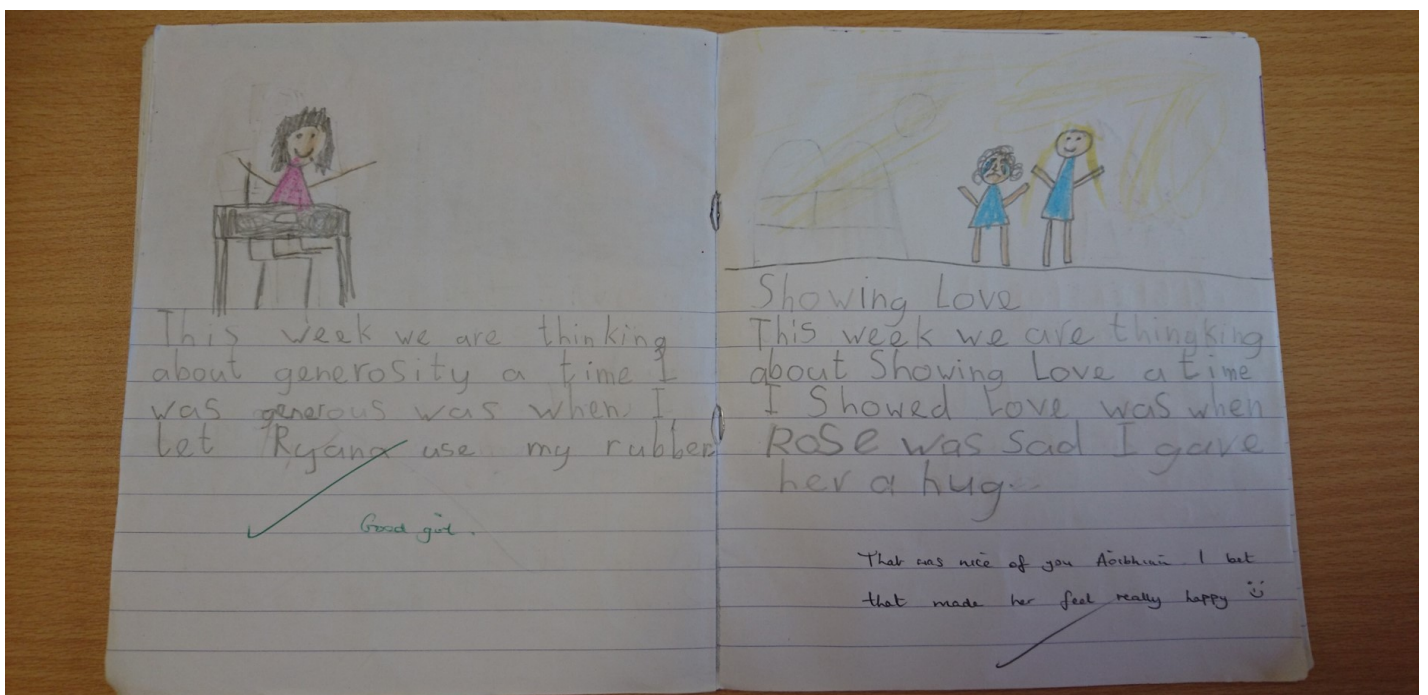 This week we are thinking
about generosity a time I
was generous was when I
let Ryana use my rubber
Good girl.
Showing Love
This week we are thingking
about Showing Love a time
I Showed Love was when
Rose was sad I gave
her a hug.
That was nice of you Aoibhinn. I bet
that made her feel really happy